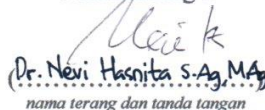 (Dr. Nevi Hasnita S.Ag, MAg
nama terang dan tanda tangan